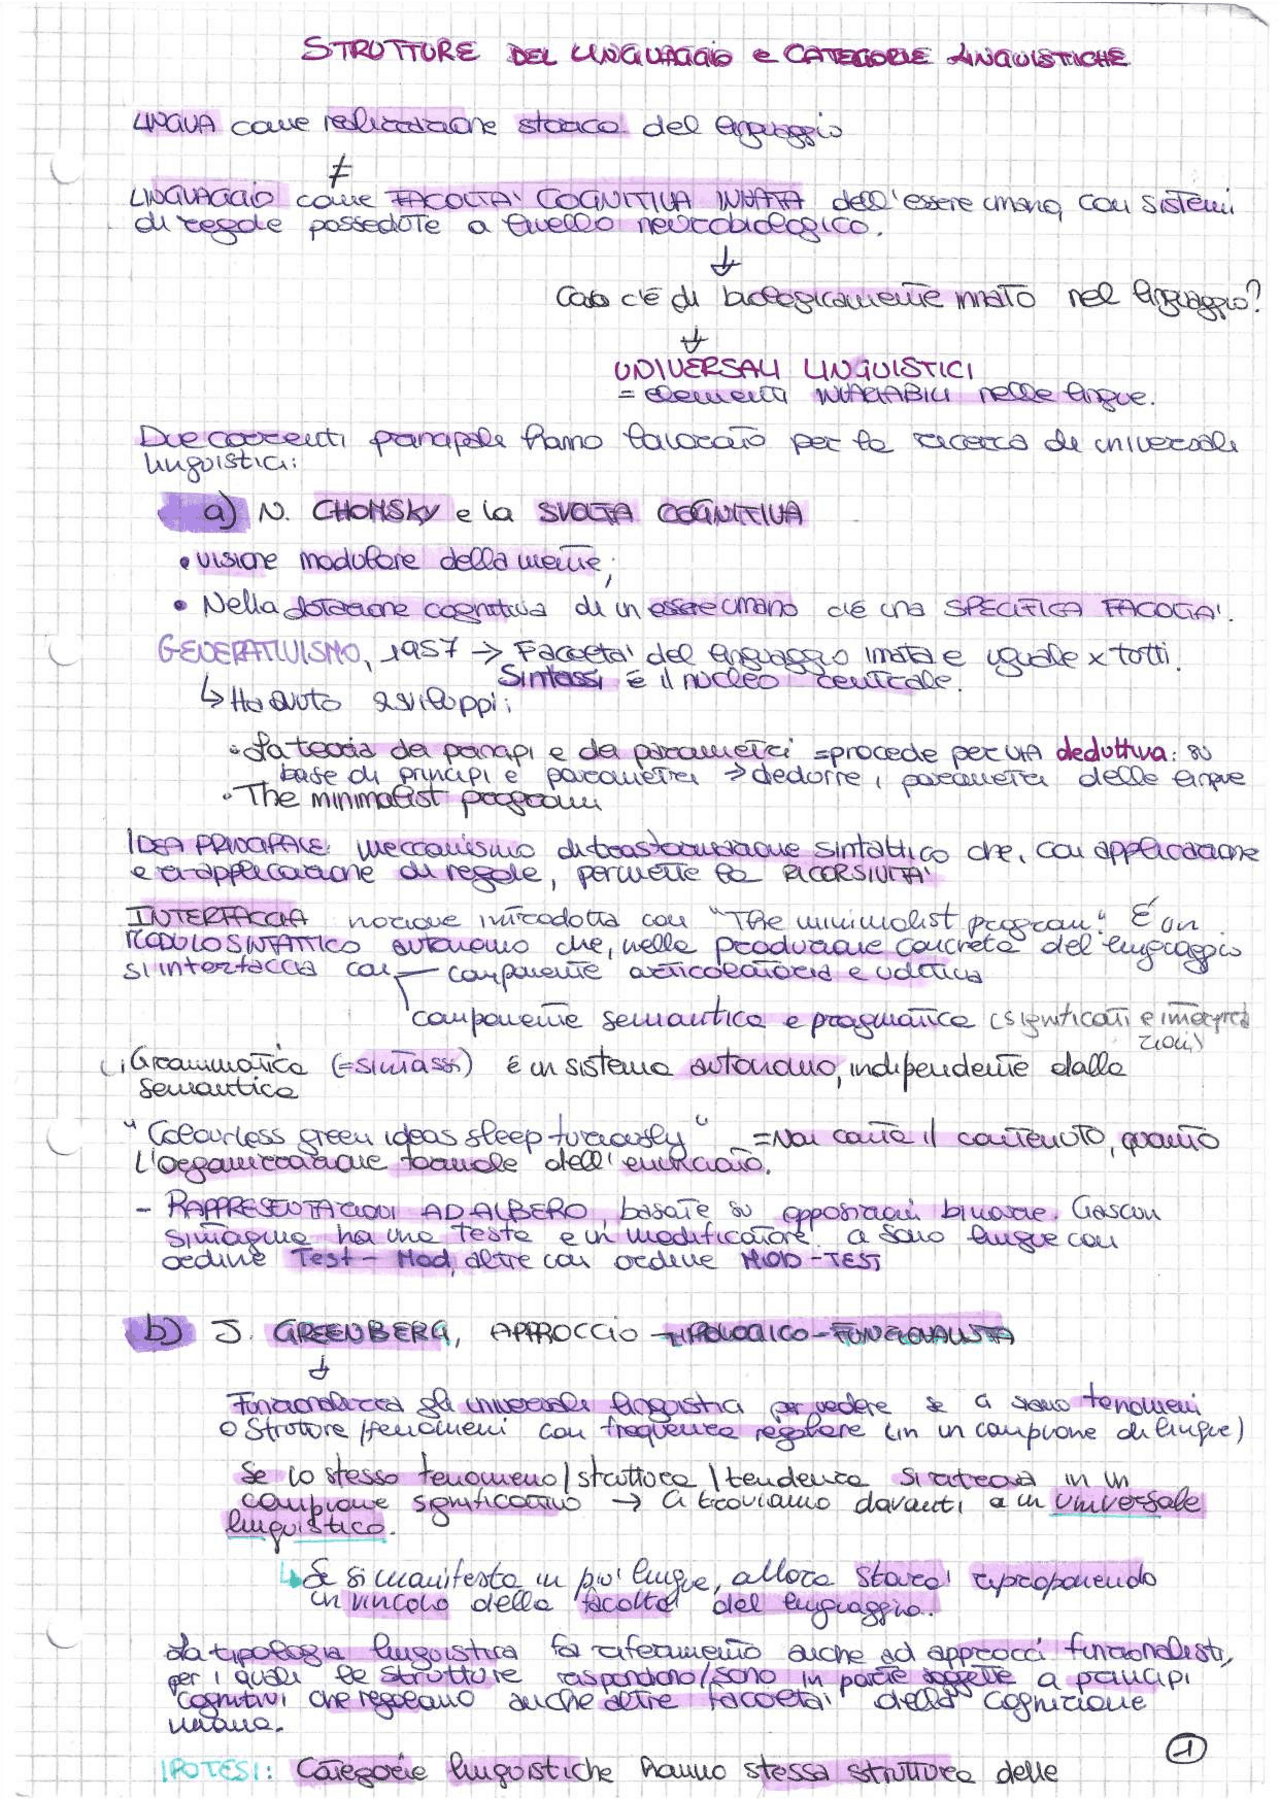 STRUTTURE DEL LINGUAGGIO e CATEGORIE LINGUISTICHE
LINGUA come realizzazione storica del linguaggio
≠
LINGUAGGIO come FACOLTA' COGNITIVA INNATA dell'essere umano, con sistemi
di regole possedute a livello neurobiologico.
↓
Cosa c'è di biologicamente innato nel linguaggio?
↓
UNIVERSALI LINGUISTICI
= elementi INVARIABILI nelle lingue.
Due correnti principali hanno lavorato per la ricerca di universali
linguistici:
a) N. CHOMSKY e la SVOLTA COGNITIVA
• visione modulare della mente;
• Nella dotazione cognitiva di un essere umano c'è una SPECIFICA FACOLTA'.
GENERATIVISMO, 1957 → Facoltà del linguaggio innata e uguale x tutti.
Sintassi è il nucleo centrale.
↳ Ha avuto 2 sviluppi:
• La teoria dei principi e dei parametri = procede per VIA deduttiva: su
base di principi e parametri → dedurre i parametri delle lingue
• The minimalist program
IDEA PRINCIPALE: meccanismo di trasformazione sintattico che, con applicazione
e riapplicazione di regole, permette la RICORSIVITA'
INTERFACCIA nozione introdotta con "The minimalist program". È un
MODULO SINTATTICO autonomo che, nella produzione concreta del linguaggio
si interfaccia con — componente articolatoria e uditiva
componente semantica e pragmatica (significati e interpretazioni)
Grammatica (=sintassi) è un sistema autonomo, indipendente dalla
semantica
"Colourless green ideas sleep furiously" = Non conta il contenuto, quanto
L'organizzazione formale dell'enunciato.
- RAPPRESENTAZIONI AD ALBERO, basate su opposizioni binarie. Ciascun
sintagma ha una testa e un modificatore. Ci sono lingue con
ordine Test - Mod, altre con ordine MOD - TEST
b) J. GREENBERG, APPROCCIO TIPOLOGICO-FUNZIONALISTA
↓
Funzionalizza gli universali linguistici per vedere se ci siano fenomeni
o strutture/fenomeni con frequenza regolare (in un campione di lingue)
Se lo stesso fenomeno/struttura/tendenza si ritrova in un
campione significativo → ci troviamo davanti a un universale
linguistico.
↳ Se si manifesta in più lingue, allora starà riproponendo
un vincolo della facoltà del linguaggio.
La tipologia linguistica fa riferimento anche ad approcci funzionalisti,
per i quali le strutture rispondono/sono in parte soggette a principi
cognitivi che regolano anche altre facoltà della cognizione
umana.
IPOTESI: Categorie linguistiche hanno stessa struttura delle
1